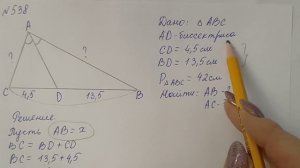 №538
A
?
?
C
4,5
D
13,5
B
Решение
Пусть AB = x
BC = BD + CD
BC = 13,5 + 4,5
Дано: △ABC
AD - биссектриса
CD = 4,5 см
BD = 13,5 см
P△ABC = 42 см
Найти: AB - ?
AC -